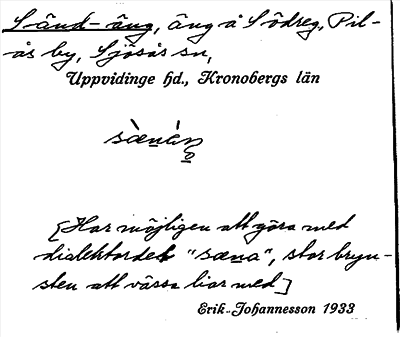 Sänd-äng, äng å Södreg, Pil-
ås by, Sjösås sn,
Uppvidinge hd., Kronobergs län
[Har möjligen att göra med
dialektordet "sæna", stor bryn-
sten att vässa liar med]
Erik Johannesson 1933